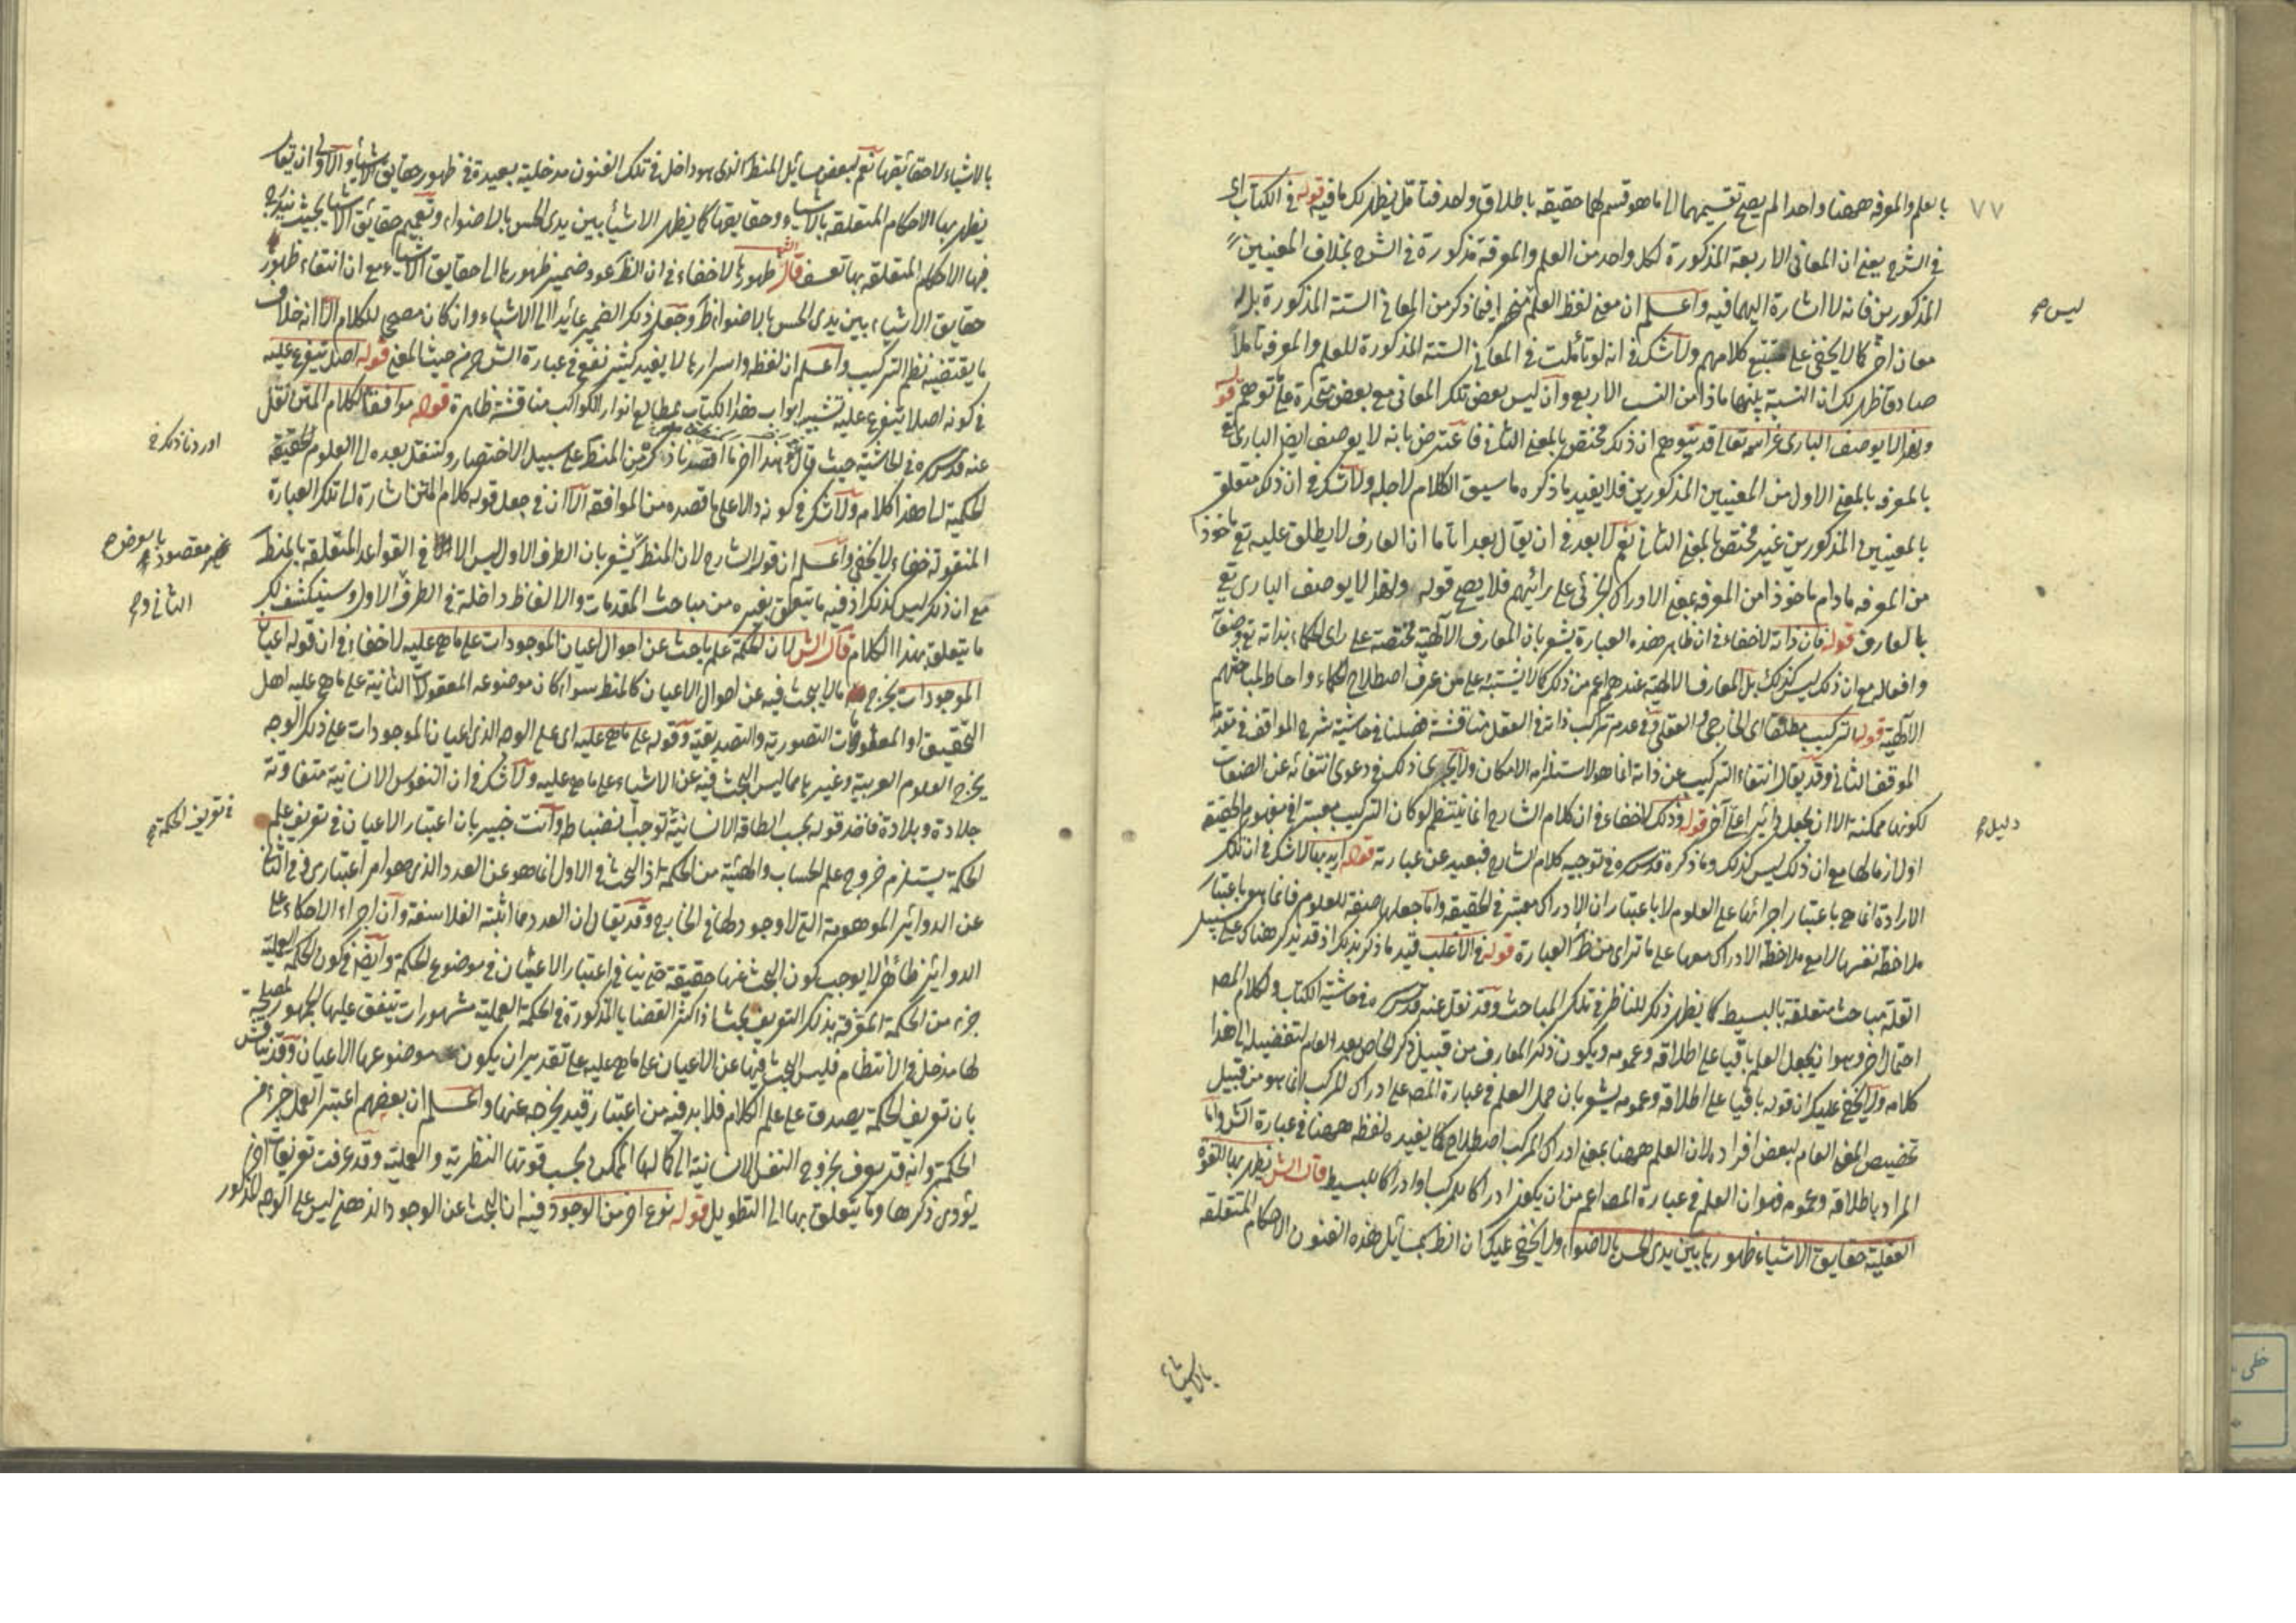 ٧٧
بالعلم والمعرفه ههنا واحدا لم يصح تقسيمهما الى ما هو قسم لهما حقيقه باطلاق واحد فتامل يظهر لك ما فيه قوله في الكتاب اى
في الشرح يعنى ان المعانى الاربعة المذكورة لكل واحد من العلم والمعرفة مذكورة في الشرح بخلاف المعنيين
المذكورين فانه لا اشارة اليهما فيه واعلم ان معنى لفظ العلم منحصرا فيما ذكر من المعانى الستة المذكورة بل له
ليس صح
معان اخر كما لا يخفى على متتبع كلامهم ولا شك في انه لو تأملت في المعانى الستة المذكورة للعلم والمعرفه تأملا
صادقا ظهر لك ان النسبة بينهما ماذا من النسب الاربع وان ليس بعض تلك المعانى مع بعض متحدة على ما توهم قوله
ولهذا لا يوصف البارى عز اسمه تعالى قد يتوهم ان ذلك مختص بالمعنى الثانى فاعترض بانه لا يوصف ايضا البارى تع
بالمعرفه بالمعنى الاول من المعنيين المذكورين فلا يفيد ما ذكره ما سيق الكلام لاجله ولا شك في ان ذكر متعلق
بالمعنيين المذكورين غير مختص بالمعنى الثانى نعم لا بعد في ان يقال بعد اما ان العارف لا يطلق عليه تع ماخوذا
من المعرفه ما دام ماخوذا من المعرفه بمعنى الادراك الجزئى على رائهم فلا يصح قوله ولهذا لا يوصف البارى تع
بالعارف قوله فان ذاته لا خفاء في ان ظاهر هذه العبارة يشعر بان المعارف الالهية مختصة على راى الحكماء بذاته تع وصفاته
وافعاله مع ان ذلك ليس كذلك بل المعارف الالهية عندهم اعم من ذلك كما لا يشتبه على من عرف اصطلاح الحكماء واحاط لمباحثهم
الالهية قوله التركيب مطلقا اى الخارجى والعقلى وفي عدم تركب ذاته في العقل مناقشة فصلنا في حاشية شرح المواقف في مقدمة
الموقف الثانى وقد يقال انتفاء التركيب عن ذاته انما هو لاستلزامه الامكان ولا يجرى ذلك في دعوى انتفائه عن الصفات
لكونها ممكنة الا ان يجعل دائرا على آخر قوله وذلك لا خفاء في ان كلام الشارح انما ينتظم لو كان التركيب معتبرا في مفهوم الحقيقة
دليل صح
او لازما لها مع ان ذلك ليس كذلك وما ذكره قدس سره في توجيه كلام الشارح فبعيد عن عبارته قوله اريد بها لا شك في ان تلك
الارادة انما هى باعتبار اجرائها على العلوم لا باعتبار ان الادراك معتبر في الحقيقة واما جعلها صفة للعلوم فانما هو باعتبار
ملاحظة نفسها لا مع ملاحظة الادراك معها على ما تراى من ظ العبارة قوله في الاغلب قيد ما ذكر بذلك اذ قد يذكر هناك على سبيل
القلة مباحث متعلقة بالبسيط كما يظهر ذلك للناظر في تلك المباحث وقد نقل عنه قدس سره في حاشية الكتاب ولكلام المصه
احتمال اخر وهو ان يجعل العلم باقيا على اطلاقه وعمومه ويكون ذكر المعارف من قبيل ذكر الخاص بعد العام لتفضيله الى هذا
كلامه ولا يخفى عليك ان قوله باقيا على اطلاقه وعمومه يشعر بان حمل العلم في عبارة المصه على ادراك المركب انما هو من قبيل
تخصيص المعنى العام لبعض افراده لان العلم ههنا بمعنى ادراك المركب اصطلاح كما يفيده لفظه ههنا في عبارة الش واما
المراد باطلاقه وعمومه فهو ان العلم في عبارة المصه اعم من ان يكون ادراكا للمركب او ادراكا للبسيط قال الش يظهر بها للقوة
العقلية حقايق الاشياء ظهورها بين يدى الحس بالاضواء ولا يخفى عليك ان الظ بمسائل هذه الفنون الاحكام المتعلقة
بالاشياء
بالاشياء لا حقائقها نعم لبعض مسائل المنطق الذى هو داخل في تلك الفنون مدخلية بعيدة في ظهور حقايق الاشياء والاولى ان يقال
يظهر بها الاحكام المتعلقة بالاشياء وحقايقها كما يظهر الاشياء بين يدى الحس بالاضواء وتعميم حقائق الاشياء بحيث يندرج
فيها الاحكام المتعلقه بها تعسف قال الش ظهورها لا خفاء في ان الظ عود ضمير ظهورها الى حقايق الاشياء مع ان انتفاء ظهور
حقايق الاشياء بين يدى الحس بالاضواء ظ وجعل ذلك الضمير عائدا الى الاشياء وان كان مصححا للكلام الا انه خلاف
ما يقتضيه نظم التركيب واعلم ان لفظه واسرارها لا يفيد كثير نفع في عبارة الشارح من حيث المعنى قوله اصل يتفرع عليه
في كونه اصلا يتفرع عليه تشبيه ابواب هذا الكتاب بمطالع انوار الكواكب مناقشة ظاهرة قوله موافقا لكلام المتن نقل
عنه قدس سره في الحاشية حيث قال فهذا اخر ما قصدنا ذكره من المنطق على سبيل الاختصار ولننتقل بعده الى العلوم الحقيقة
اوردنا ذلك في
الحكمية الى هذا كلامه ولا شك في كونه دالا على ما قصده من الموافقة الا ان في جعل قوله كلام المتن اشارة الى تلك العبارة
المنقولة خفاء لا يخفى واعلم ان قول الشارح لان المنطق يشعر بان الطرف الاول ليس الا في القواعد المتعلقة بالمنطق
غير مقصود بالعرض صح
مع ان ذلك ليس كذلك اذ فيه ما يتعلق بغيره من مباحث المقدمات والالفاظ داخلة في الطرف الاول وسينكشف لك
الثانى وصح
ما يتعلق بهذا الكلام قال الش لان الحكمة علم باحث عن احوال اعيان الموجودات على ما هى عليه لا خفاء في ان قوله اعيان
الموجودات يخرج ما لا يبحث فيه عن احوال الاعيان كالمنطق سواء كان موضوعه المعقولات الثانية على ما هى عليه اهل
التحقيق او المعلومات التصورية والتصديقية وقوله على ما هى عليه اى على الوجه الذى اعيان الموجودات على ذلك الوجه
يخرج العلوم العربية وغيرها مما ليس البحث فيه عن الاشياء على ما هى عليه ولا شك في ان النفوس الانسانية متفاوتة
جلادة وبلادة فاخذ قوله بحسب الطاقة الانسانية لتوجب انضباطه وانت خبير بان اعتبار الاعيان في تعريف علم
في تعريف الحكمة صح
الحكمة يستلزم خروج علم الحساب والهيئة من الحكمة اذ البحث في الاول انما هو عن العدد الذى هو امر اعتبارى وفي الثانى
عن الدوائر الموهومة التى لا وجود لها في الخارج وقد يقال ان العدد مما اثبته الفلاسفة وان اجراء الاحكام على
الدوائر ظاهرا لا يوجب كون البحث عنها حقيقة حتى ينافى اعتبار الاعيان في موضوع الحكمة وايضا في كون الحكمة العملية
جزء من الحكمة المعرفة بذلك التعريف بحثا اذ اكثر القضايا المذكورة في الحكمة العملية مشهورات يتفق عليها الجمهور لمصلحة
لها مدخل في الانتظام فليس البحث فيها عن الاعيان على ما هى عليه على تقدير ان يكون موضوعها الاعيان وقد يناقش
بان تعريف الحكمة يصدق على علم الكلام فلا بد فيه من اعتبار قيد يخرجه عنها واعلم ان بعضهم اعتبر العمل جزء من
الحكمة وانه قد يعرف بخروج النفس الانسانية الى كمالها الممكن بحسب قوتها النظرية والعملية وقد عرفت تعريفات اخر
يؤدى ذكرها وما يتعلق بها الى التطويل قوله نوع اخر من الوجود فيه ان البحث عن الوجود الذهنى ليس على الوجه المذكور
خطى